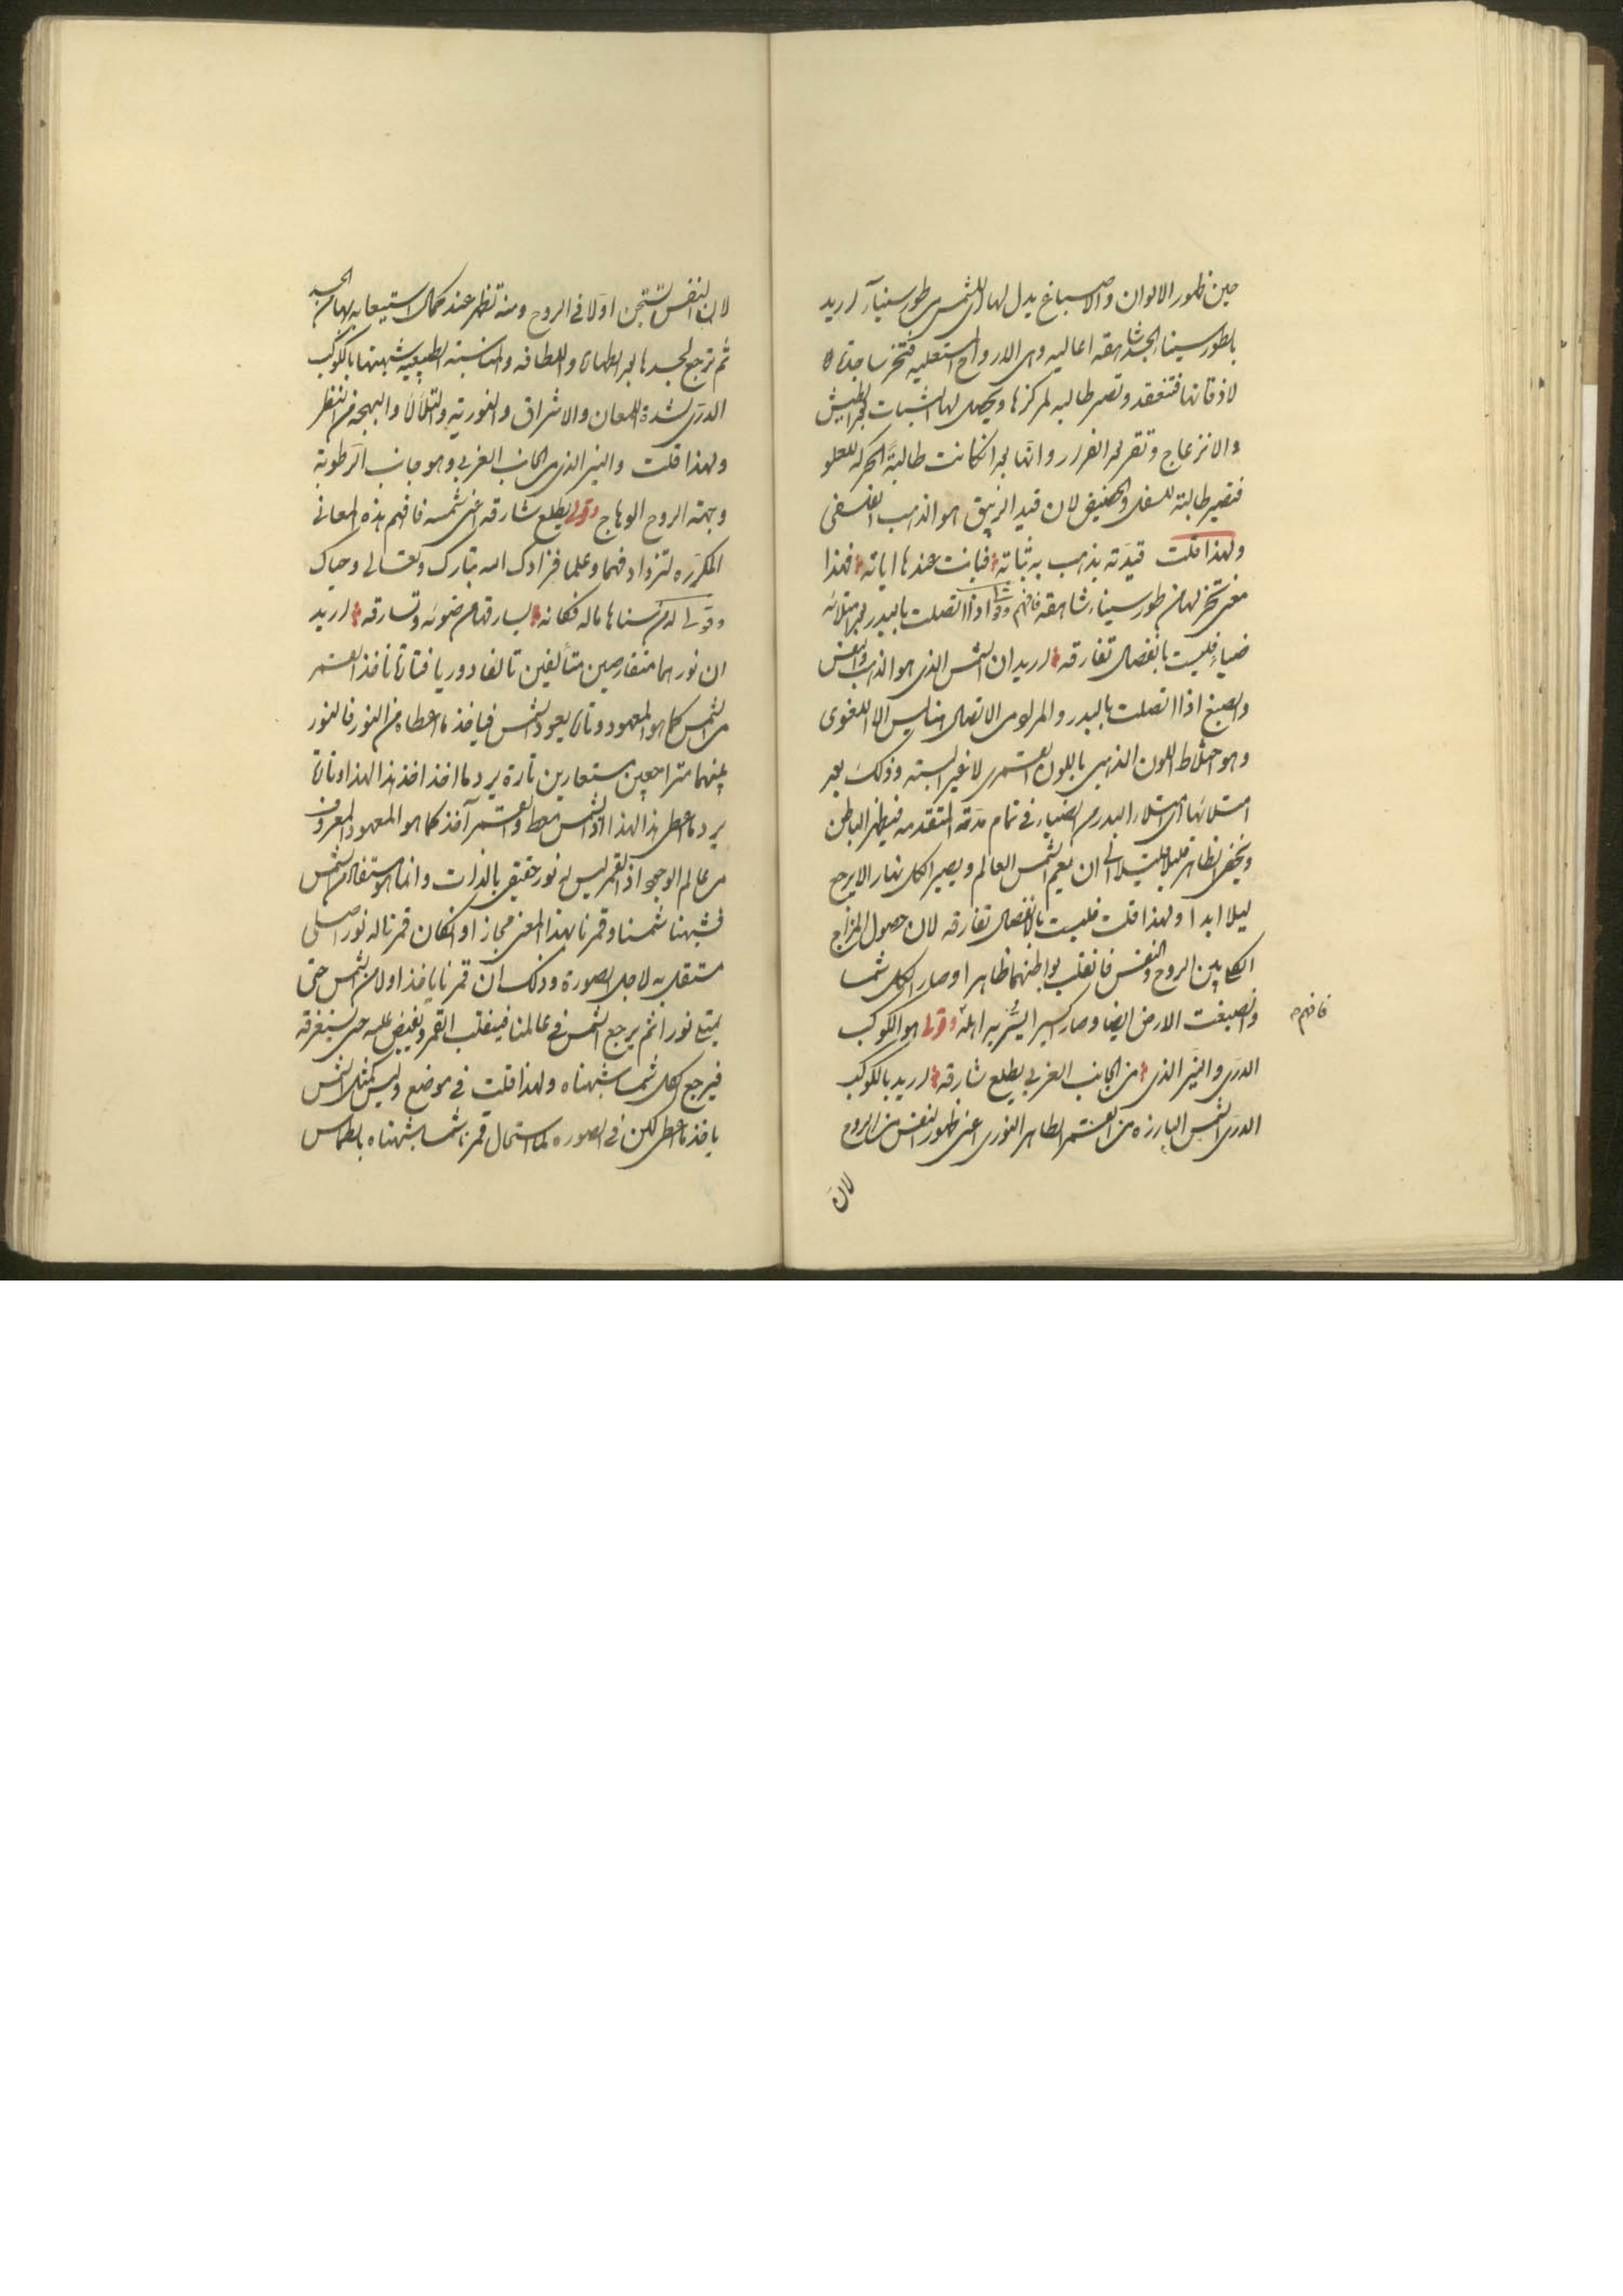 حين ظهور الالوان والاصباغ يدل لها للشمس طور سيناء اريد
بطور سينا الجسد شاهقه اعاليه وهى الارواح المستعليه فتخر ساجدة
لاذقانها فتنعقد وتصير طالبه لمركزها ويحصل لها الثبات بعد الطيش
والانزعاج وتقر بعد الفرار وانها بعد ان كانت طالبة الحركه للعلو
فتصير طالبة للسفل والحضيض لان قيد الزيبق هو الذهب الفلسفى
ولهذا قلت قيدته بذهب به ثباته فبانت عندها اياته فهذا
معنى تخر لها من طور سيناء شاهقه فافهم وقولى اذا اتصلت بالبدر بعد امتلائه
ضياء فليست بانفصال تفارقه اريد ان الشمس الذى هو الذهب والنفس
والصبغ اذا اتصلت بالبدر والمراد من الاتصال هنا ليس الا اللغوى
وهو اختلاط اللون الذهبى باللون القمرى لا غير البته وذلك بعد
امتلائها اى امتلاء البدر من الضياء فى تمام مدته المتقدمه فيظهر الباطن
ويخفى الظاهر قليلا قليلا الى ان يعم الشمس العالم ويصير الكل نهارا لا يرجع
ليلا ابدا ولهذا قلت فليست بالانفصال تفارقه لان حصول المزاج
الكلى بين الروح والنفس فانقلب بواطنهما ظاهرا وصار الكل شمسا
وانصبغت الارض ايضا وصار اكسيرا ليشر به اهله وقولى هو الكوكب
فافهم
الدرى والنير الذى من الجانب الغربى يطلع شارقه اريد بالكوكب
الدرى الشمس البارزه من القمر الطاهر النورى اعنى ظهور النفس من الروح
لان
لان النفس تستجن اولا فى الروح ومنه تظهر عند كمال استيعابه لها من الجسد
ثم ترجع لجسدها بعد الطهارة واللطافه والمناسبة الطبيعيه شبهتها بالكوكب
الدرى لشدة اللمعان والاشراق والنورية والتلألأ والبهجه فى النظر
ولهذا قلت والنير الذى من الجانب الغربى وهو جانب الرطوبة
وجهته الروح الوهاج وقولى يطلع شارقه اعنى شمسه فافهم هذه المعانى
المكرره لتزداد فهما وعلما فزادك الله تبارك وتعالى وحباك
وقولى له من سناها ماله فكانه يسارقها من ضوئه وتسارقه اريد
ان نورهما متقارضين متألفين تالفا دوريا فتارة تاخذ القمر
من الشمس كما هو المعهود وتارة يعود الشمس فياخذ ما اعطاه من النور فالنور
بينهما متراجعين مستعارين تارة يرد ما اخذ اخذ هذا لهذا وتارة
يرد ما اعطى هذا لهذا اذ الشمس معط والقمر آخذ كما هو المعهود المعروف
من عالم الوجود اذ القمر ليس له نور حقيقى بالذات وانما هو مستفاد من الشمس
فشبهنا شمسنا وقمرنا بهذا المعنى مجازا وان كان قمرنا له نور اصلى
مستقل به لاجل الصورة وذلك ان قمرنا ياخذ اولا من الشمس حتى
يمتلئ نورا ثم يرجع الشمس فى عالمنا فينقلب القمر ويفيض عليه حتى يستغرقه
فيرجع الكل شمسا شبهناه ولهذا قلت فى موضع وليس كمثل الشمس
ياخذ ما اعطى لكن فى الصوره لما استحال قمرنا شمسا شبهناه بالطماس